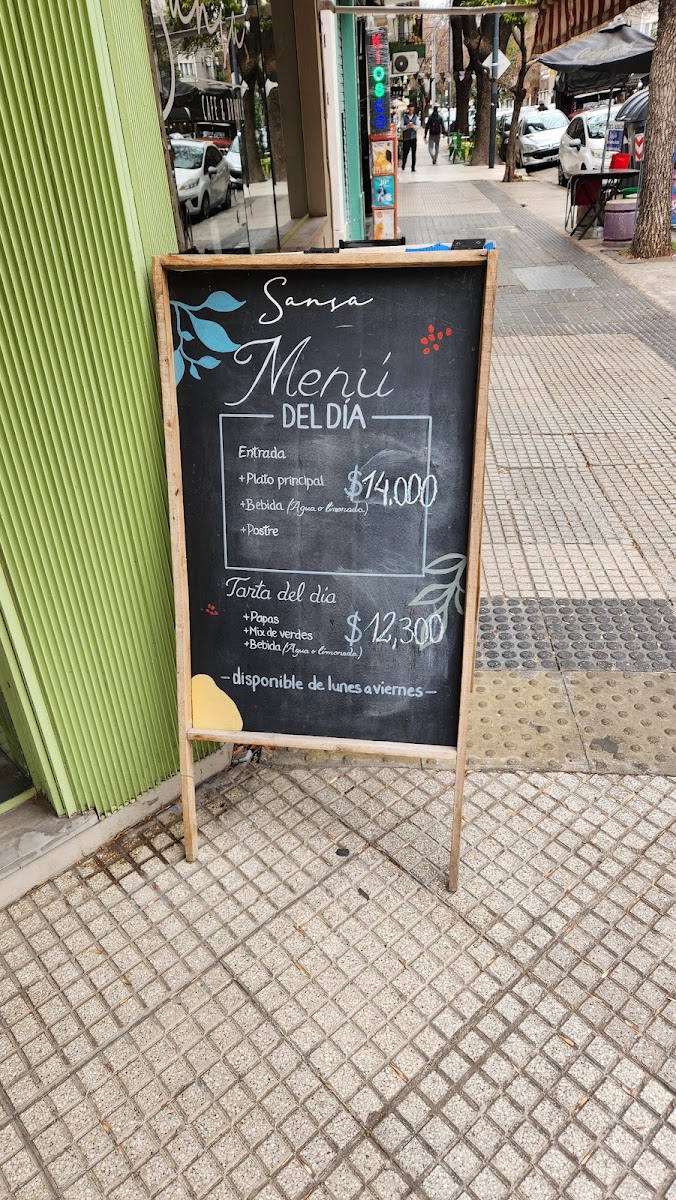 KIOSCO
Sansa
Menú
DEL DÍA
Entrada
+Plato principal
$14.000
+Bebida (Agua o limonada)
+Postre
Tarta del día
+Papas
+Mix de verdes
$12,300
+Bebida (Agua o limonada)
-disponible de lunes a viernes-